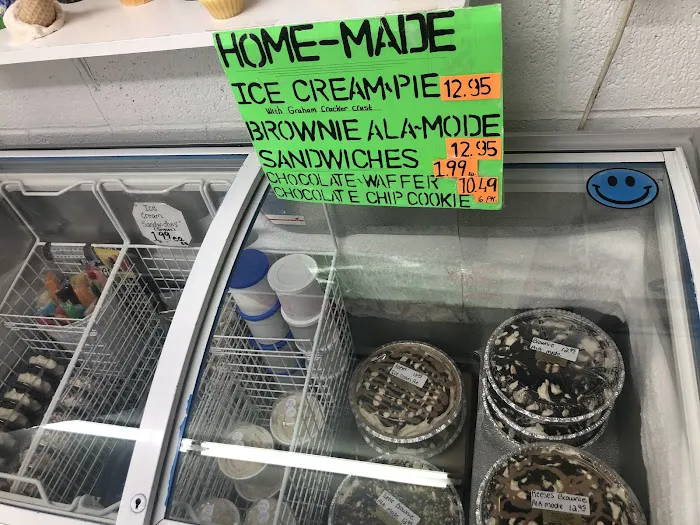 HOME-MADE
ICE CREAM PIE 12.95
With Graham Cracker Crust
BROWNIE ALA-MODE
12.95
SANDWICHES 1.99 ea
CHOCOLATE WAFFER 10.49
CHOCOLATE CHIP COOKIE 6 PK
Ice
Cream
Sandwiches
1.99 ea
Brownie 12.95
ALA mode
Reeses Brownie
ALA mode 12.95